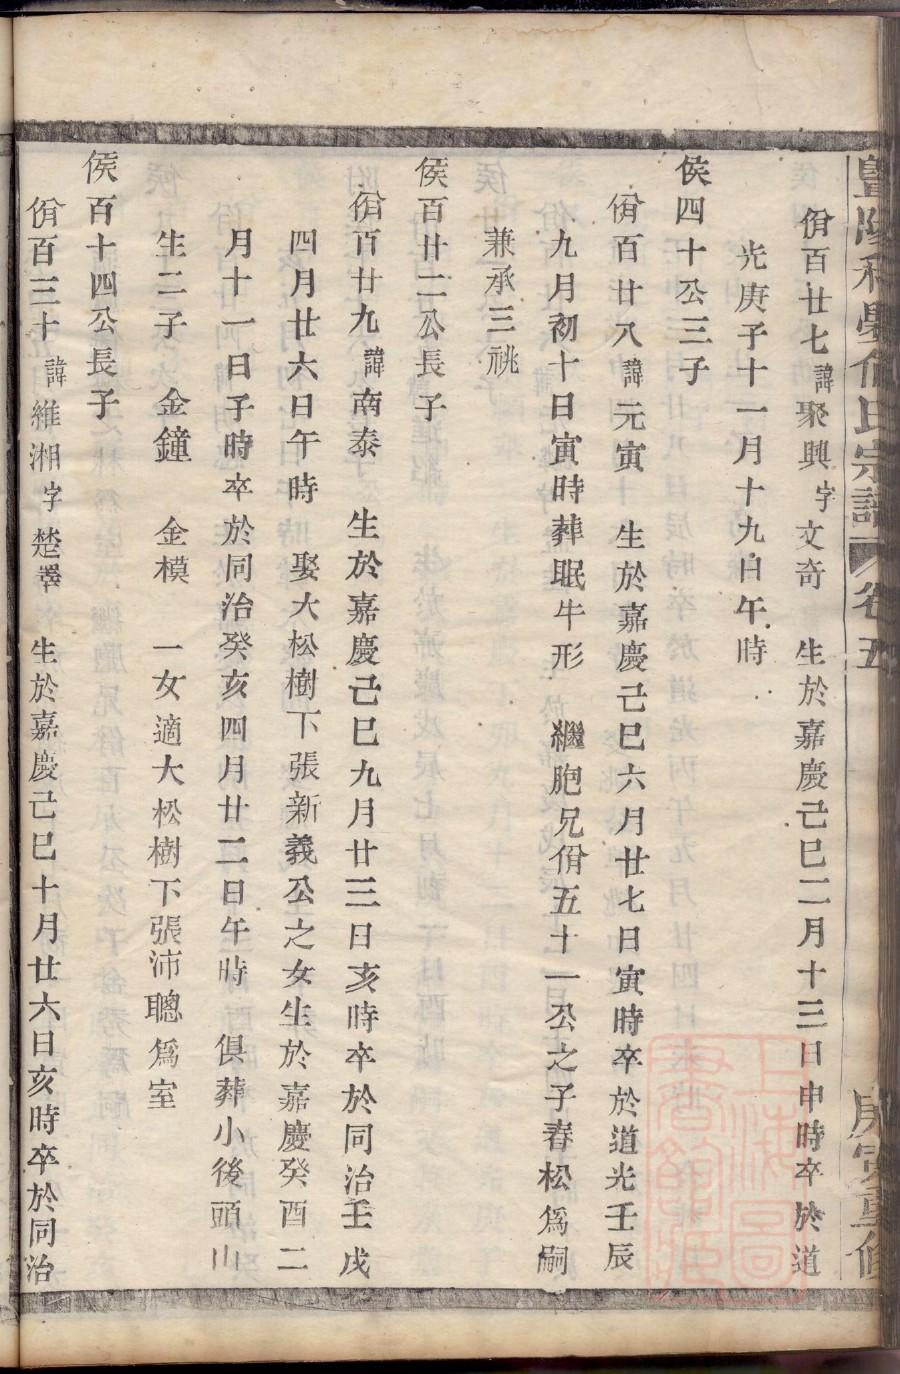 暨陽 宗譜 卷五 庚寅重修
佾百廿七諱聚興字文奇 生於嘉慶己巳二月十三日申時卒於道
光庚子十一月十九日午時
侯四十公三子
佾百廿八諱元寅 生於嘉慶己巳六月廿七日寅時卒於道光壬辰
九月初十日寅時葬眠牛形 繼胞兄佾五十一公之子春松爲嗣
兼承三祧
侯百廿二公長子
佾百廿九諱南泰 生於嘉慶己巳九月廿三日亥時卒於同治壬戌
四月廿六日午時 娶大松樹下張新義公之女生於嘉慶癸酉二
月十一日子時卒於同治癸亥四月廿二日午時 俱葬小後頭山
生二子 金鐘 金模 一女適大松樹下張沛聰爲室
侯百十四公長子
佾百三十諱維湘字楚澤 生於嘉慶己巳十月廿六日亥時卒於同治